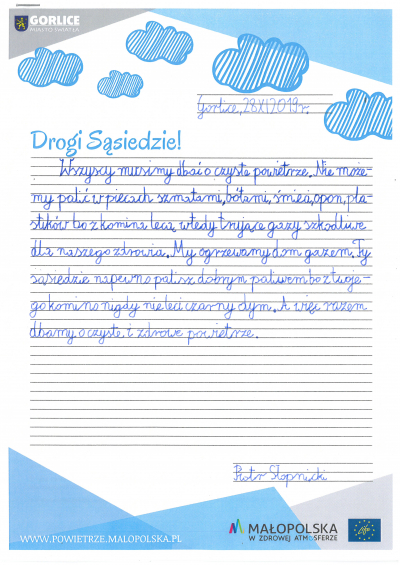 GORLICE
MIASTO ŚWIATŁA
Gorlice, 28.XI.2019r.
Drogi Sąsiedzie!
Wszyscy musimy dbać o czyste powietrze. Nie może-
my palić w piecach szmatami, butami, śmieci, opon, pla-
stików bo z komina lecą wtedy trujące gazy szkodliwe
dla naszego zdrowia. My ogrzewamy dom gazem. Ty
sąsiedzie napewno palisz dobrym paliwem bo z twoje-
go komino nigdy nie leci czarny dym. A więc razem
dbamy o czyste i zdrowe powietrze.
Piotr Słopnicki
WWW.POWIETRZE.MALOPOLSKA.PL
MAŁOPOLSKA
W ZDROWEJ ATMOSFERZE